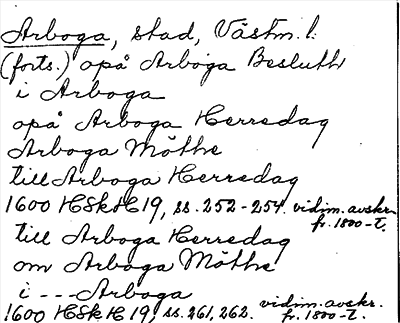 Arboga, stad, Västm. l.
(forts.) opå Arboga Besluth
i Arboga
opå Arboga Herredag
Arboga Möthe
till Arboga Herredag
1600 HSkH 19, ss. 252-254. vidim. avskr. fr. 1800-t.
till Arboga Herredag
om Arboga Möthe
i --- Arboga
1600 HSkH 19, ss. 261, 262. vidim. avskr. fr. 1800-t.